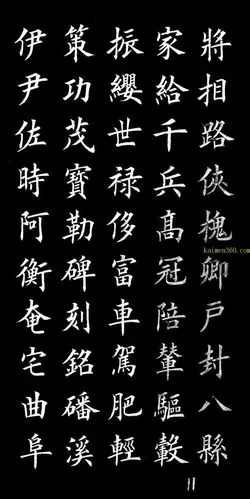 將相路俠槐卿戶封八縣
家給千兵髙冠陪輦驅轂
振纓世禄侈富車駕肥輕
策功茂實勒碑刻銘磻溪
伊尹佐時阿衡奄宅曲阜
kaimen360.com
11